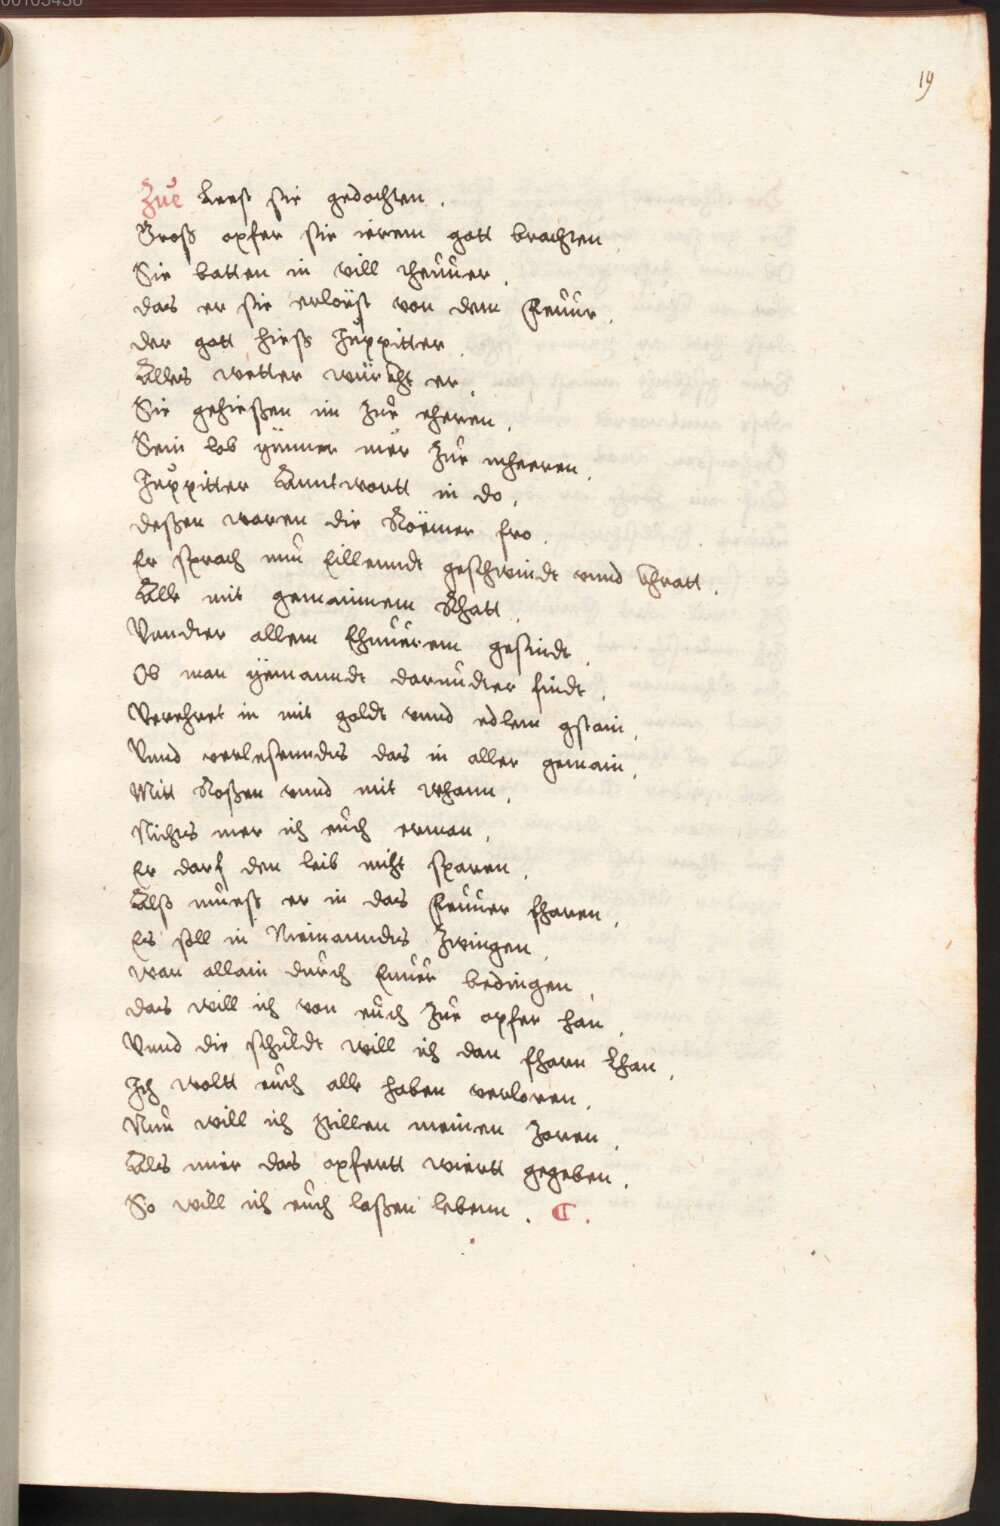 00105458
19
Zue Leest sie gedochten.
Groß opfer sie ierem gott brachten.
Sie batten in vill theüuer.
das er sie erlöyst von dem Feuür.
der gott hieß Juppitter.
Alles wetter würckht er.
Sie gehießen im Zue eheren.
Sein lob ÿmmer mer Zue mheeren.
Juppitter Anntwortt in do.
deßen waren die Römer fro.
Er sprach nun Eillenndt geschwindt vnnd thratt.
Alle mit gemainnem Rhatt.
Vonndter allem Ehuürem gesindt.
Ob man ÿemanndt darundter findt.
Verehret in mit goldt vnnd edlem gstain.
Vnnd verlesenndts das in aller gemain.
Mitt Roßen vnnd mit whann.
Nichts mer ich euch erman.
Er darf den leib nicht sparen.
Alß mueß er in das Feuüer fharen.
Es soll in Niemanndts Zwingen.
wan allain durch Euuer bedingen.
das will ich von euch Zue opfer han.
Vnnd die schuldt will ich dan fharn Lhan.
Ich woltt euch alle haben verloren.
Nun will ich stillen meinen Zoren.
Als mier das opfertt wiertt gegeben.
So will ich euch laßen lebenn. C.